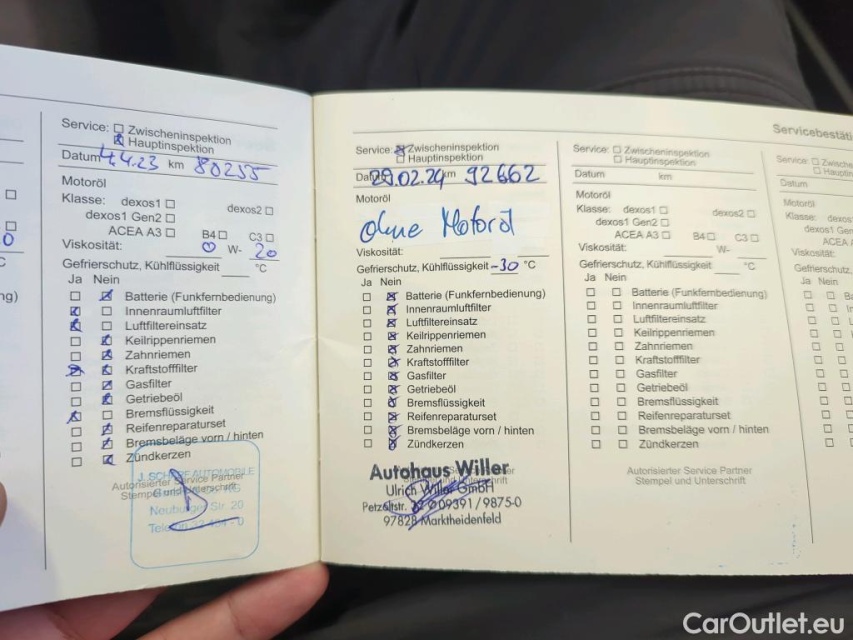 Servicebestäti
Service: Zwischeninspektion
Hauptinspektion
Datum 4.4.23 km 80255
Motoröl
Klasse: dexos1 dexos2
dexos1 Gen2
ACEA A3 B4 C3
Viskosität: 0 W- 20
Gefrierschutz, Kühlflüssigkeit °C
Ja Nein
Batterie (Funkfernbedienung)
Innenraumluftfilter
Luftfiltereinsatz
Keilrippenriemen
Zahnriemen
Kraftstofffilter
Gasfilter
Getriebeöl
Bremsflüssigkeit
Reifenreparaturset
Bremsbeläge vorn / hinten
Zündkerzen
Autorisierter Service Partner
Stempel und Unterschrift
AUTOMOBILE
Neuburger Str. 20
Service: Zwischeninspektion
Hauptinspektion
Datum 29.02.24 km 92662
Motoröl
ohne Motoröl
Viskosität:
Gefrierschutz, Kühlflüssigkeit -30 °C
Ja Nein
Batterie (Funkfernbedienung)
Innenraumluftfilter
Luftfiltereinsatz
Keilrippenriemen
Zahnriemen
Kraftstofffilter
Gasfilter
Getriebeöl
Bremsflüssigkeit
Reifenreparaturset
Bremsbeläge vorn / hinten
Zündkerzen
Autohaus Willer
Ulrich Willer GmbH
Petzoltstr. 09391/9875-0
97828 Marktheidenfeld
Service: Zwischeninspektion
Hauptinspektion
Datum km
Motoröl
Klasse: dexos1 dexos2
dexos1 Gen2
ACEA A3 B4 C3
Viskosität: W-
Gefrierschutz, Kühlflüssigkeit °C
Ja Nein
Batterie (Funkfernbedienung)
Innenraumluftfilter
Luftfiltereinsatz
Keilrippenriemen
Zahnriemen
Kraftstofffilter
Gasfilter
Getriebeöl
Bremsflüssigkeit
Reifenreparaturset
Bremsbeläge vorn / hinten
Zündkerzen
Autorisierter Service Partner
Stempel und Unterschrift
Service: Zwische
Hauptin
Datum
Motoröl
Klasse: dexos1
dexos1 Gen2
ACEA A
Viskosität:
Gefrierschutz,
Ja Nein
CarOutlet.eu